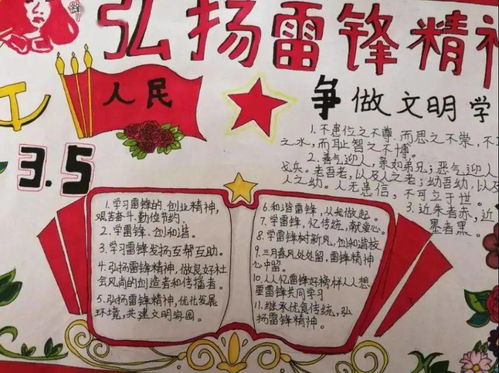 弘扬雷锋精神
人民
争做文明学
3.5
1.不患位之不尊,而患不崇,不
之水,而耻智之不博。
2.善气迎人,亲如弟兄;恶气迎人,
戈兵。老吾老,以及人之老;幼吾幼,以
人之幼。人无忠信,不可立于世。
3.近朱者赤,近
墨者黑。
1.学习雷锋的创业精神,
艰苦奋斗,勤俭节约。
2.学雷锋、创和谐。
3.学习雷锋发扬互帮互助。
4.弘扬雷锋精神,做良好社
会风尚的创造者和传播者。
5.弘扬雷锋精神,优化发展
环境,共建文明家园。
6.和谐雷锋,从我做起。
7.学雷锋,忆传统,献爱心。
8.学雷锋树新风,创和谐校
9.三月春风处处留,雷锋精神
心中留。
10.人人忆雷锋好榜样人人想
里雷锋共同学习
11.继承优良传统,弘
扬雷锋精神。